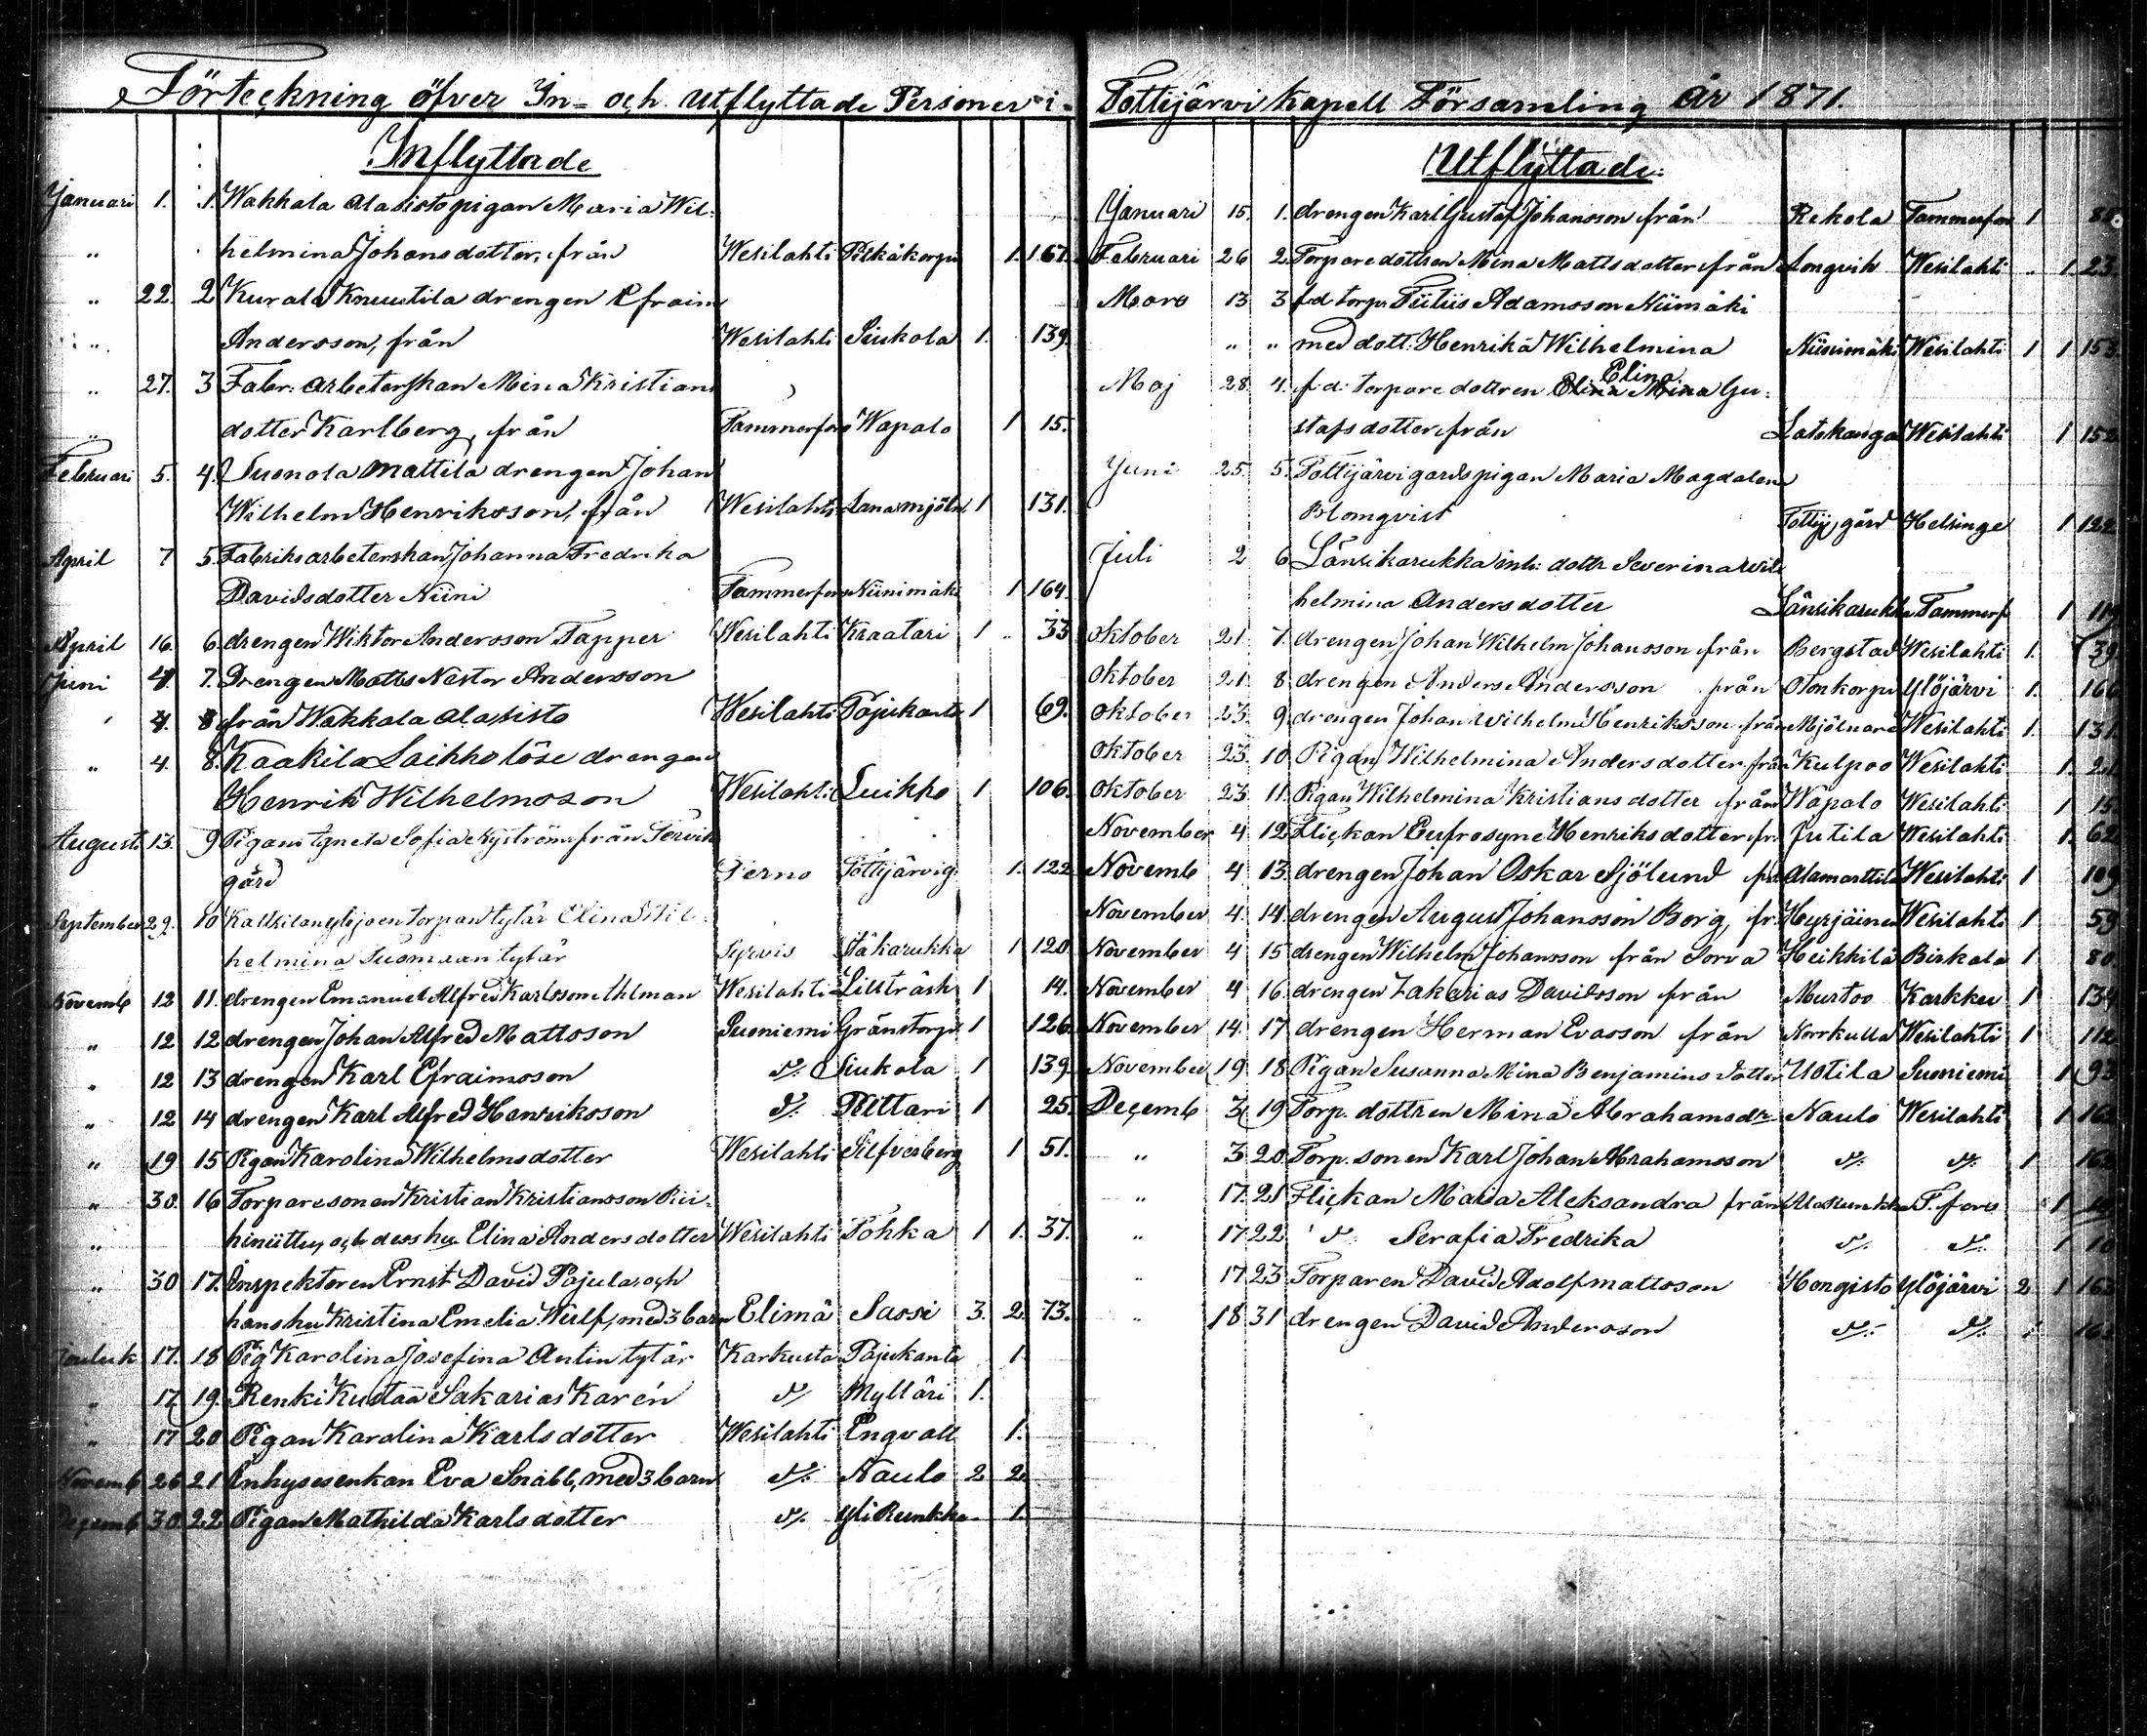 Förteckning öfver In- och utflyttade Personer i Tottijärvi kapell Församling År 1871.
Inflyttade
Januari 1. 1. Wakkala Alasisto pigan Maria Wil-
„ helmina Johansdotter, från Wesilahti Pitkäkorpi 1. 167.
„ 22. 2 Kurala Knuutila drengen Efraim
„ Andersson, från Wesilahti Siukola 1. 139.
„ 27. 3 Fabr: arbeterskan Mina Kristians
„ dotter Karlberg, från Tammerfors Wapalo 1 15.
Februari 5. 4. Suonola Mattila drengen Johan
Wilhelm Henriksson, från Wesilahti 1 131.
April 7 5. Fabriksarbeterskan Johanna Fredrika
Davidsdotter Niini Tammerfors Niinimäki 1 164.
April 16. 6. drengen Wiktor Andersson Tapper Wesilahti Kraatari 1 .. 33
Juni 4. 7. Drengen Matts Nestor Andersson
4. 8 från Wakkala Alasisto Wesilahti Pajukanta 1 69.
„ 4. 8. Kaakila Laikko löse drengen
Henrik Wilhelmsson Wesilahti Luikko 1 106.
Augusti 13. 9 Pigan Agneta Sofia Nyström från Tervik
gård Perno Tottijärvi g. 1. 122
September 29. 10 torpan tytär Elina Wil-
helmina Tuomaan tytär 1 120
Novemb 12 11. drengen Emanuel Alfred Karlsson Uhlman Wesilahti Lillträsk 1 14.
„ 12 12 drengen Johan Alfred Mattsson Suoniemi Gränstorp 1 126.
„ 12 13 drengen Karl Efraimsson d:o Siukola 1 139.
„ 12 14 drengen Karl Alfred Henriksson d:o Pittari 1 25.
„ 19 15 Pigan Karolina Wilhelmsdotter Wesilahti Silfverberg 1 51.
„ 30. 16 Torpare sonen Kristian Kristiansson Rii-
„ hiniitty och dess hu Elina Andersdotter Wesilahti Tohka 1 1. 37.
„ 30 17. Inspektoren Ernst David Pajula och
hans hu Kristina Emelia Wulf, med 3 barn Elimä Sassi 3. 2. 73.
Jouluk 17. 18 Pig Karolina Josefina Antin tytär Karkusta Pajukanta 1
„ 17. 19. Renki Kustaa Sakarias Karén d:o Mylläri 1.
„ 17 20 Pigan Karolina Karlsdotter Wesilahti Engvall 1.
Novemb 26 21 Inhysesenkan Eva Snabb, med 3 barn d:o Naulo 2 2.
Decemb 30. 22 Pigan Mathilda Karlsdotter d:o Yli Runkka 1.
Utflyttade.
Januari 15. 1. drengen Karl Gustaf Johansson från Rekola Tammerfors 1 85.
Februari 26 2. Torpare dottren Mina Mattsdotter från Longvik Wesilahti .. 1 23.
Mars 13 3 f.d. torp. Tiitus Adamsson Niimäki
„ „ med dott. Henrika Wilhelmina Niinimäki Wesilahti 1 1 153.
Maj 28 4. f.d. torpare dottren Elina Mina Elina Gu-
stafsdotter från Latokanga Wesilahti 1 152
Juni 25 5. Tottijärvi gårds pigan Maria Magdalena
Blomqvist Tottij. gård Helsinge 1 122
Juli 2 6 Länsikarukka inh: dottr Severina Wil-
helmina Andersdotter Länsikarukka Tammerf. 1 119
Oktober 21. 7. drengen Johan Wilhelm Johansson från Bergstad Wesilahti 1. 39
Oktober 21. 8 drengen Anders Andersson från Otonkorpi Ylöjärvi 1. 166
Oktober 23. 9. drengen Johan Wilhelm Henriksson från Mjölnare Wesilahti 1. 131.
Oktober 23. 10 Pigan Wilhelmina Andersdotter från Kulpoo Wesilahti 1.
Oktober 23 11. Pigan Wilhelmina Kristiansdotter från Wapalo Wesilahti 1 15
November 4 12 Flickan Eufrosyne Henriksdotter fr. Jutila Wesilahti 1. 62
Novemb 4 13. drengen Johan Oskar Sjölund från Alamarttila Wesilahti 1 109
November 4. 14. drengen August Johansson Borg, fr. Hyrjäinen Wesilahti 1 59
November 4 15 drengen Wilhelm Johansson från Sorva Heikkilä Birkala 1 80
November 4 16. drengen Zakarias Davidsson från Murtoo Karkku 1 134
November 14. 17 drengen Herman Evasson från Norrkulla Wesilahti 1 112
November 19 18 Pigan Susanna Mina Benjaminsdotter Uotila Suoniemi 1 93
Decemb 3 19 Torp. dottren Mina Abrahamsdr Naulo Wesilahti 1 162
„ 3 20. Torp. sonen Karl Johan Abrahamsson d:o d:o 1 162
„ 17. 21 Flickan Maria Aleksandra från Alarunkka T.fors 1 10
„ 17 22 d:o Serafia Fredrika d:o d:o 1 10
„ 17 23 Torparen David Adolf Mattsson Hongisto Ylöjärvi 2 1 163
„ 18 31 drengen David Andersson d:o d:o 1